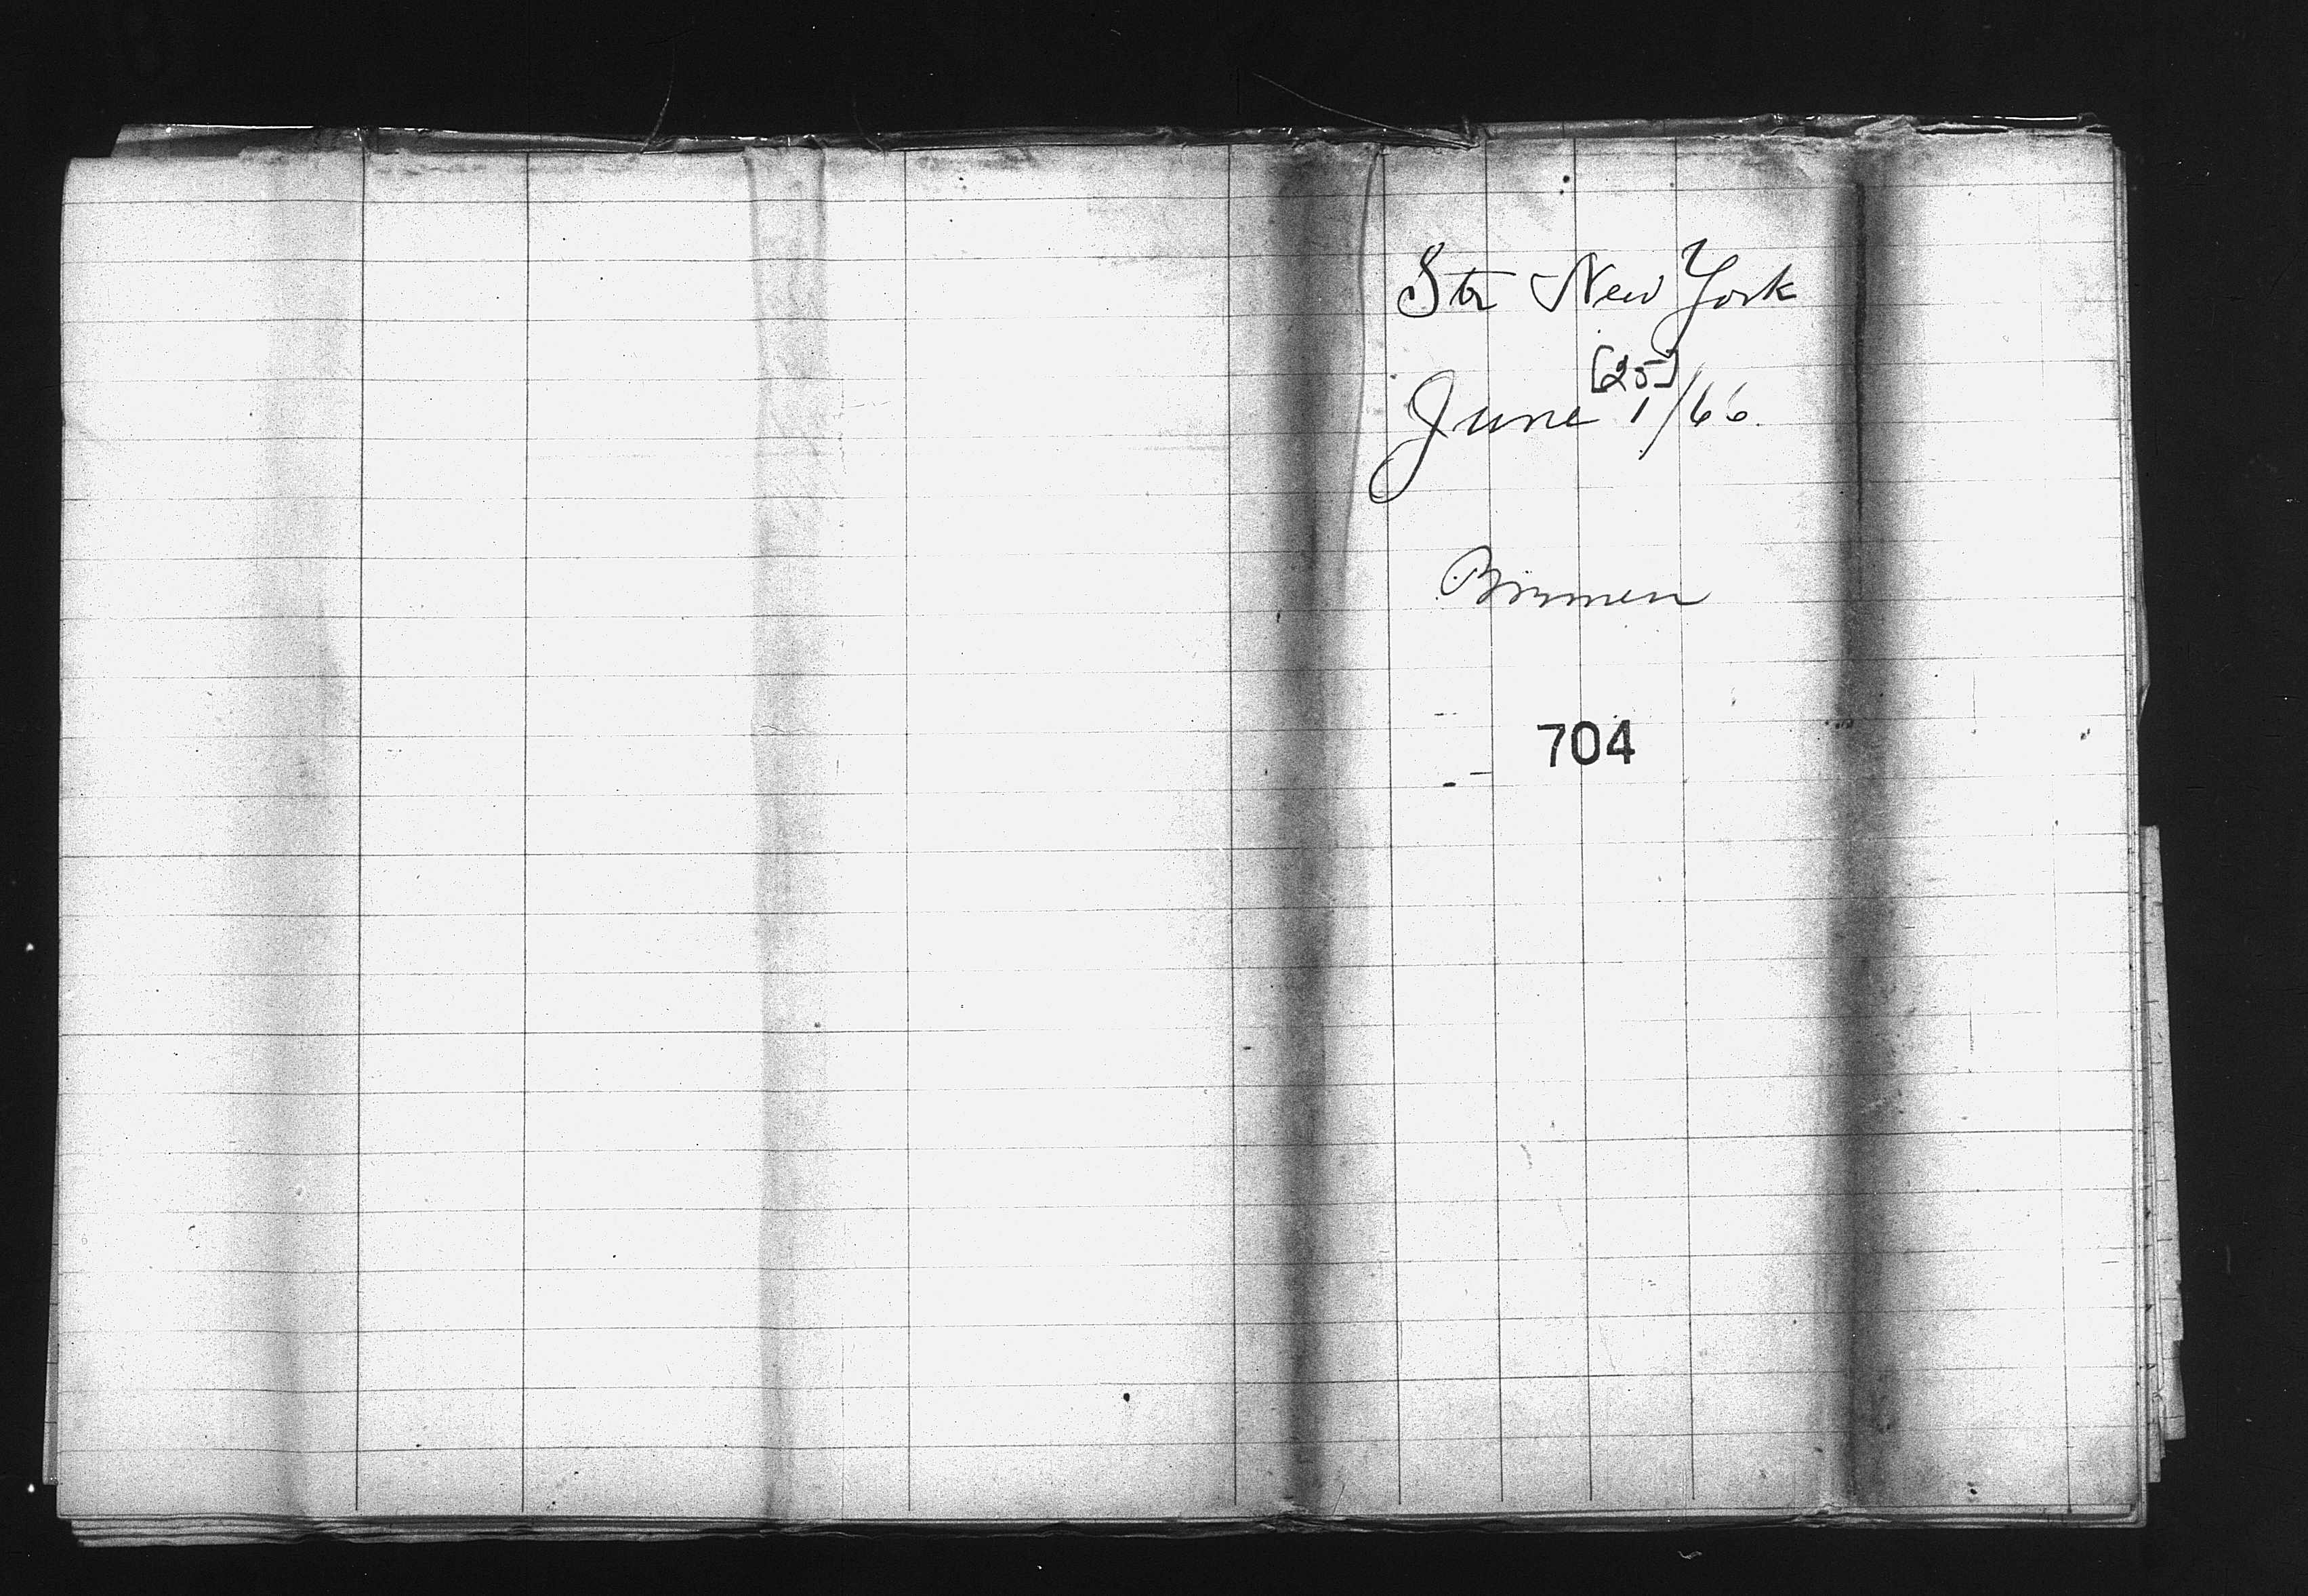 Str New York
[25]
June 1/66.
Brimmen
704